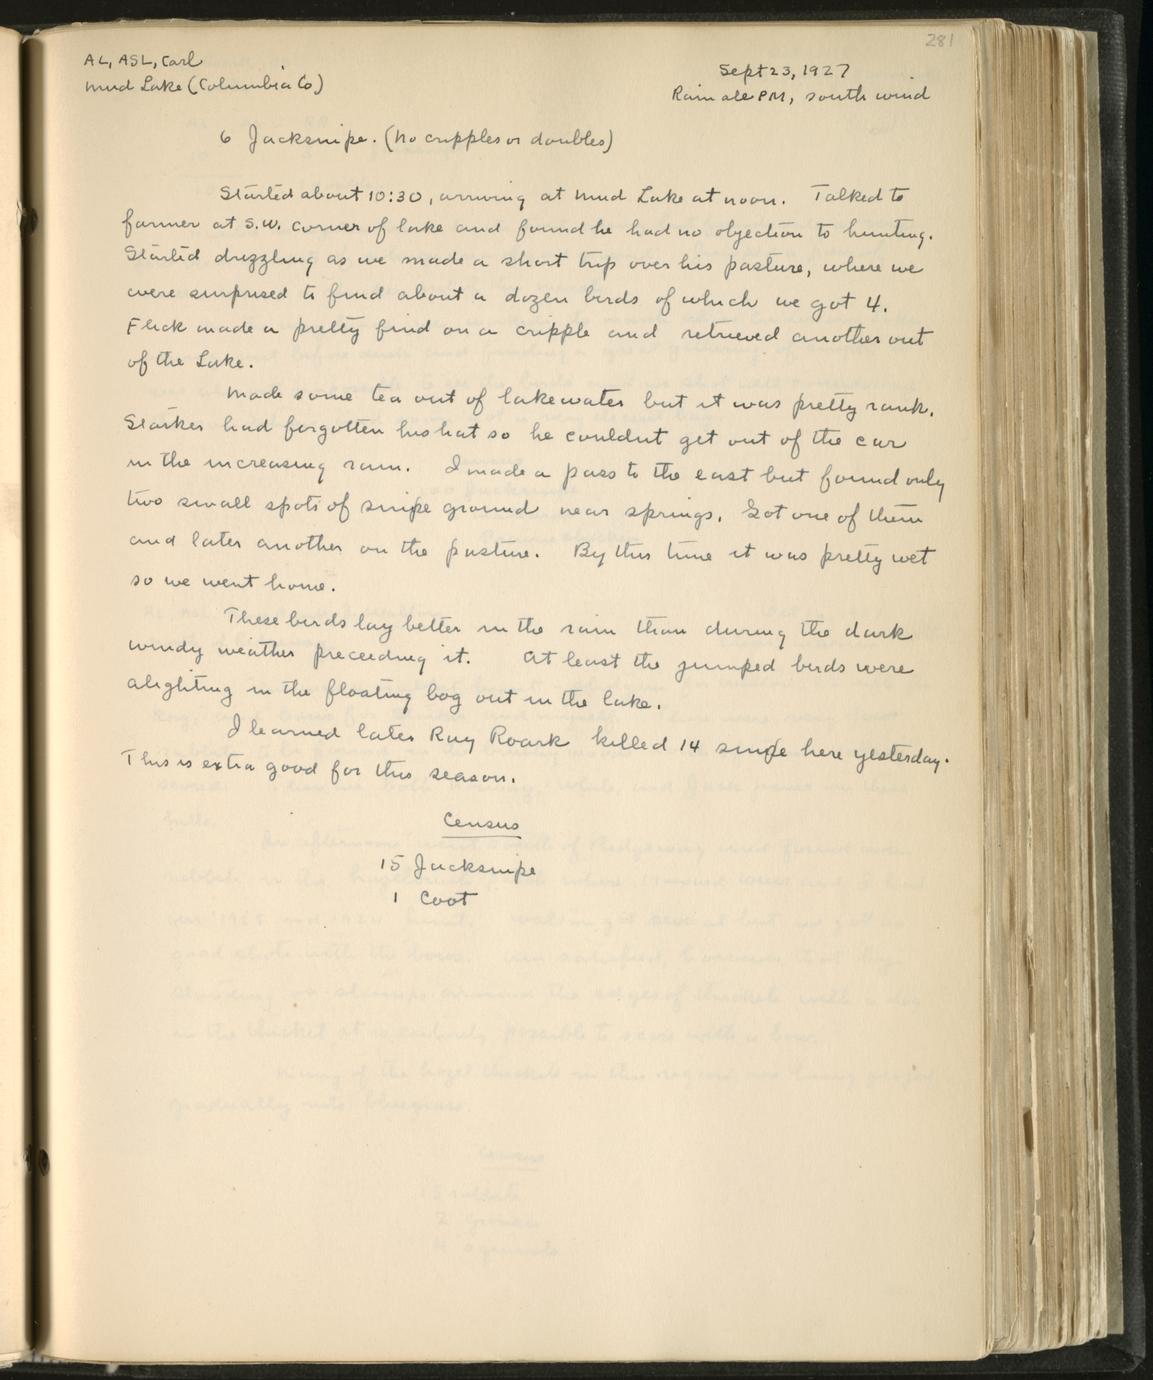 281
AL, ASL, Carl
Mud Lake (Columbia Co)
Sept 23, 1927
Rain all PM, south wind
6 Jacksnipe. (No cripples or doubles)
Started about 10:30, arriving at Mud Lake at noon. Talked to
farmer at S.W. corner of lake and found he had no objection to hunting.
Started drizzling as we made a short trip over his pasture, where we
were surprised to find about a dozen birds of which we got 4.
Flick made a pretty find on a cripple and retrieved another out
of the Lake.
Made some tea out of lakewater but it was pretty rank.
Starker had forgotten his hat so he couldnt get out of the car
in the increasing rain. I made a pass to the east but found only
two small spots of snipe ground near springs. Got one of them
and later another on the pasture. By this time it was pretty wet
so we went home.
These birds lay better in the rain than during the dark
windy weather preceeding it. At least the jumped birds were
alighting in the floating bog out in the lake.
I learned later Ray Roark killed 14 snipe here yesterday.
This is extra good for this season.
Census
15 Jacksnipe
1 Coot